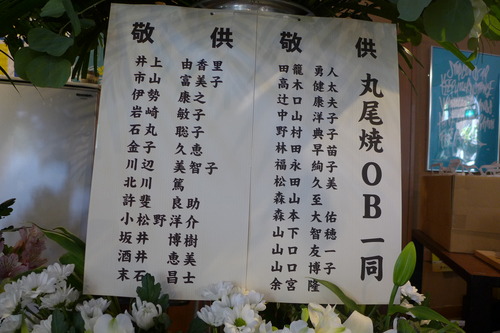 敬 供
丸尾焼OB一同
田籠勇人
高木健太
辻口康夫
中山洋子
野村典子
林田早苗
福永絢子
松田久美
森山至
森本大佑
山下智穂
山口友一
山口博子
余宮隆
敬 供
井上由香里
市山富美子
伊勢康之
岩崎敏子
石丸聡子
金子久恵
川辺美智子
北川篤
許斐良助
小松野洋介
坂井博樹
酒井恵美
末石昌士